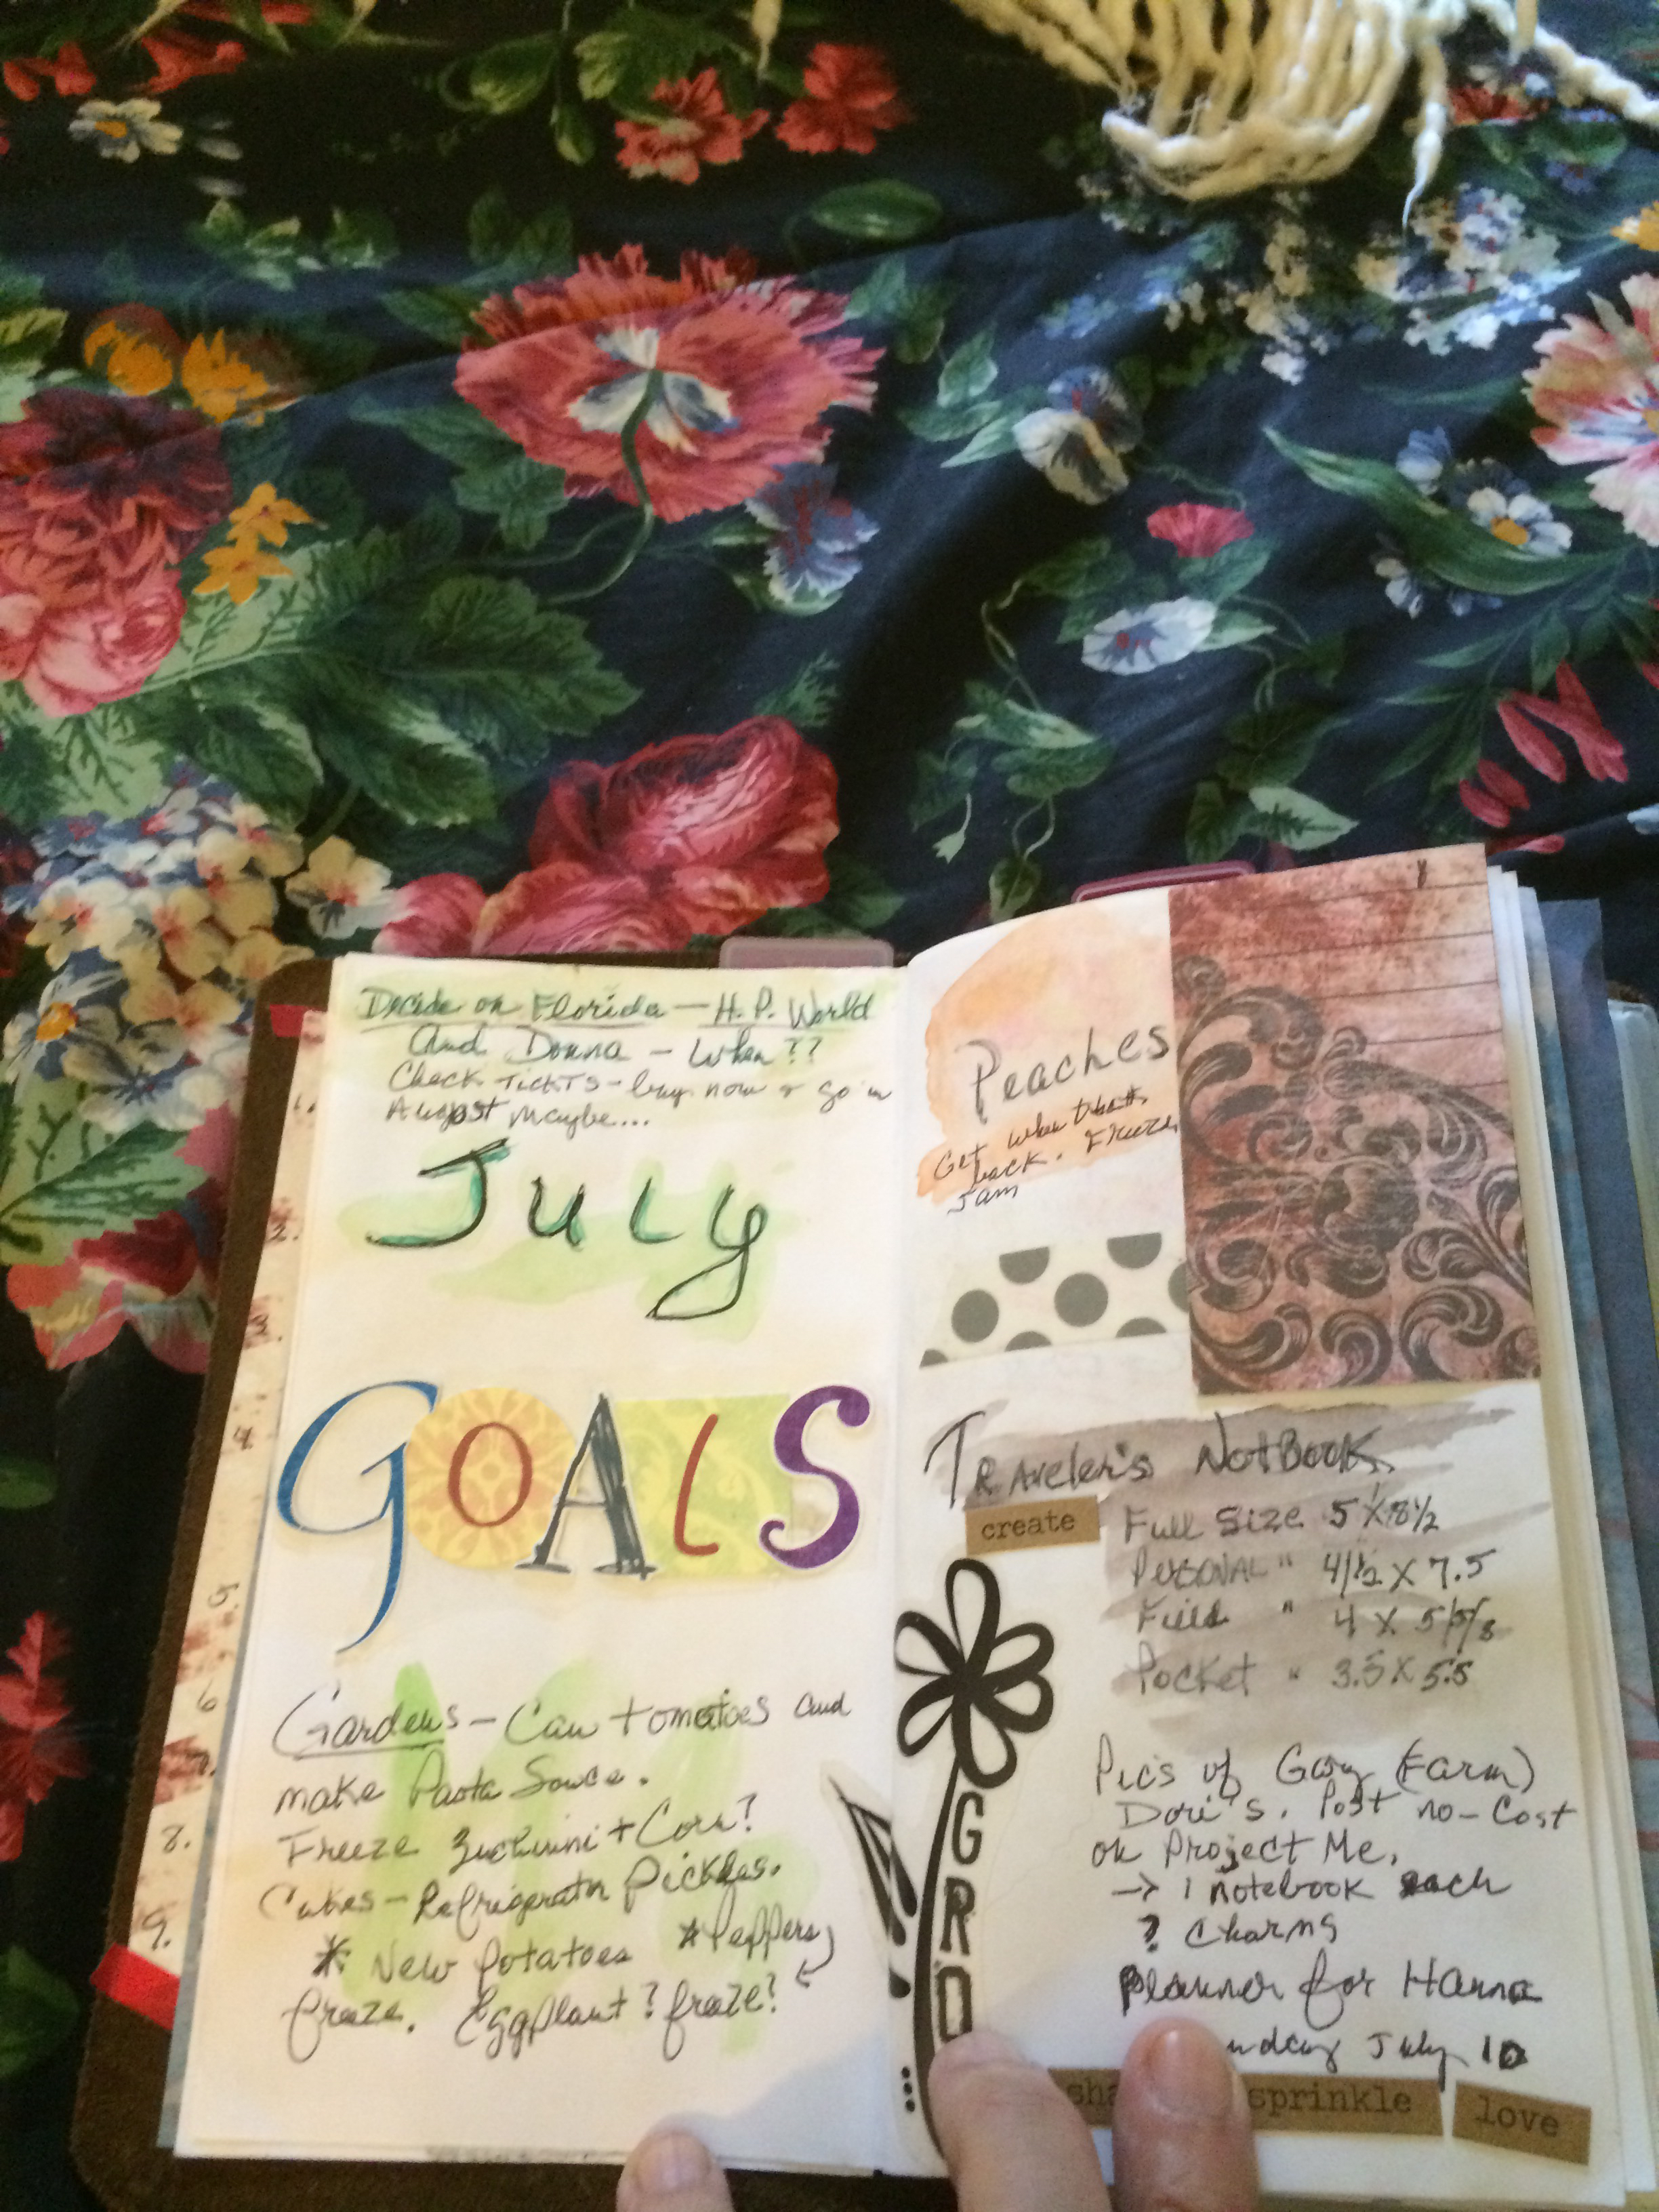 Decide on Florida — H.P. World
And Donna - When??
Check TickTs - buy now & go in
August Maybe...
July
GOALS
Gardens - Can tomatoes and
make Pasta Souce.
Freeze Zuchinni + Corn?
Cukes - Refrigerator Pickles.
* New Potatoes * Peppers
freeze. Eggplant? freeze?
2.
4.
5.
6
7.
8.
9.
Peaches
Get when
back. Freeze
Jam
Traveler's NotBook
create
Full Size 5 X 8 1/2
Personal " 4 1/2 X 7.5
Field " 4 X 5/5/8
Pocket " 3.5 X 5.5
Pic's of Gary (Farm)
Dori's. Post no-Cost
on Project Me.
→ 1 notebook each
? Charms
Planner for Hanna
unday July 10
GRO
sha sprinkle love